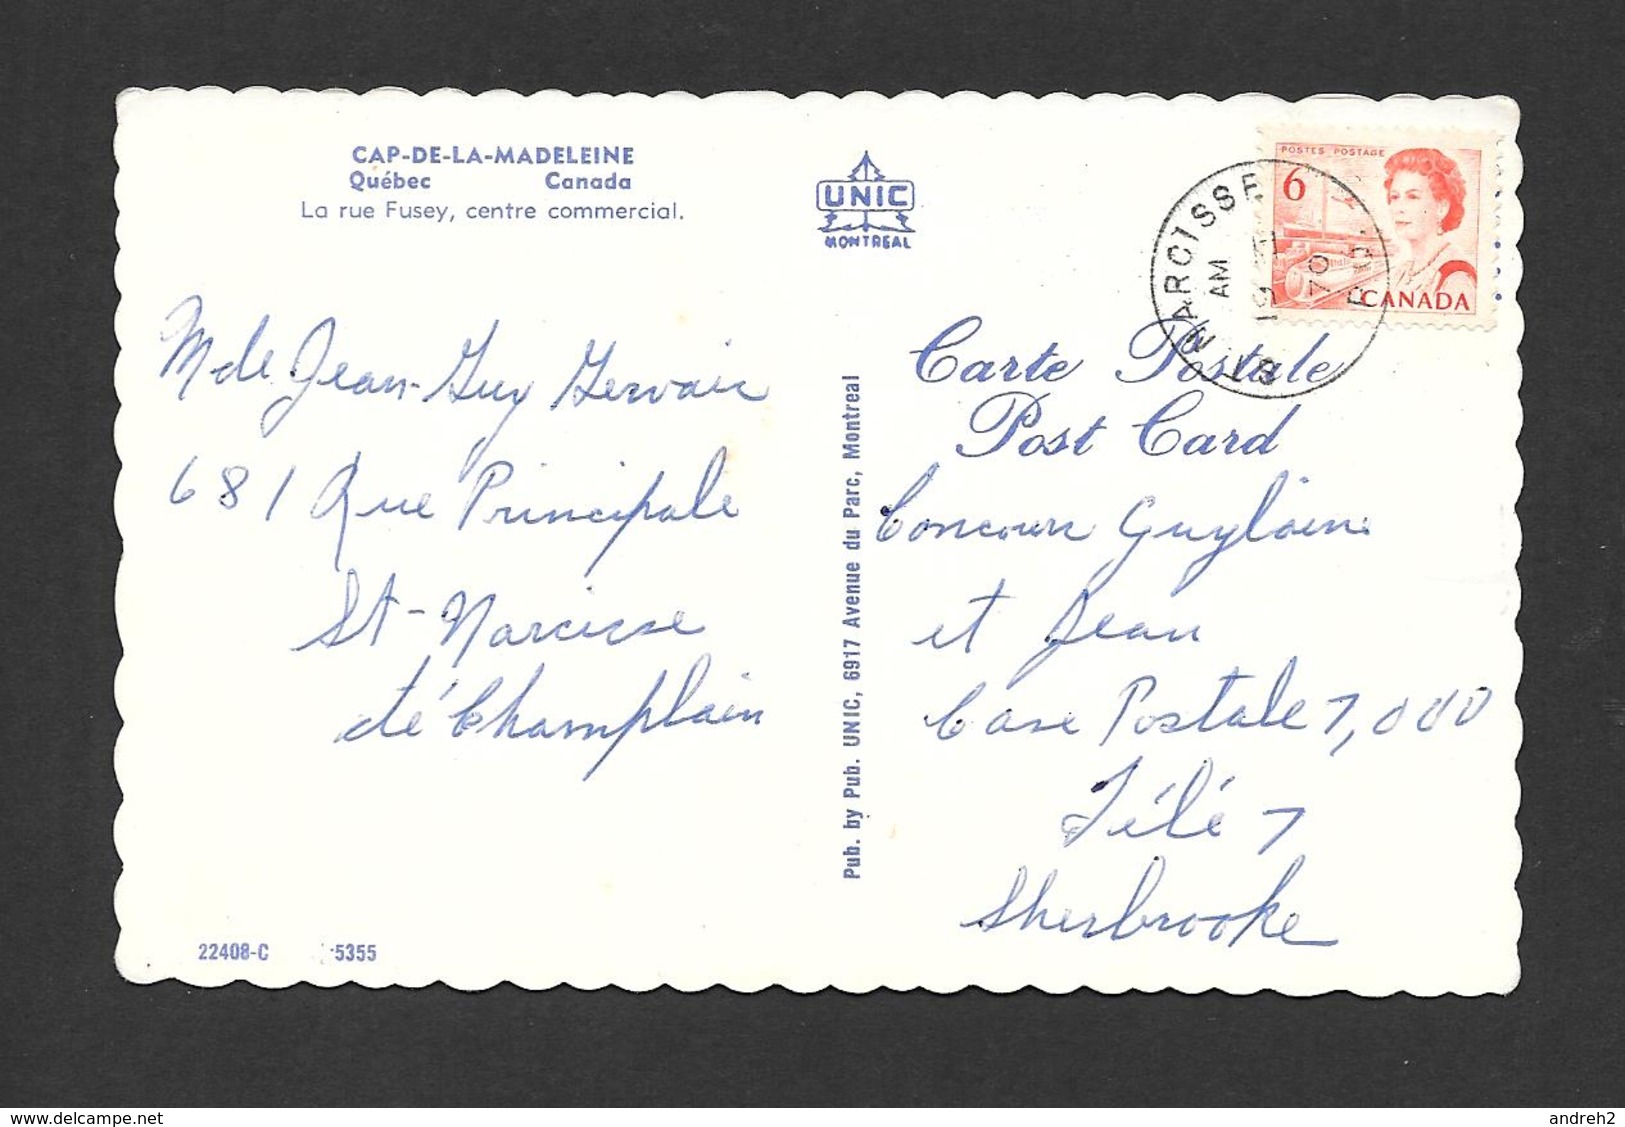 CAP-DE-LA-MADELEINE
Québec Canada
La rue Fusey, centre commercial.
UNIC
MONTREAL
POSTES POSTAGE
6
CANADA
ST NARCISSE P.Q.
AM
19
70
Carte Postale
Post Card
Mde Jean-Guy Gervais
681 Rue Principale
St-Narcisse
dé Champlain
Pub. by Pub. UNIC, 6917 Avenue du Parc, Montreal
Concours Guylaine
et Jean
Case Postale 7,000
Télé 7
Sherbrooke
22408-C 5355
delcampe.net
andreh2